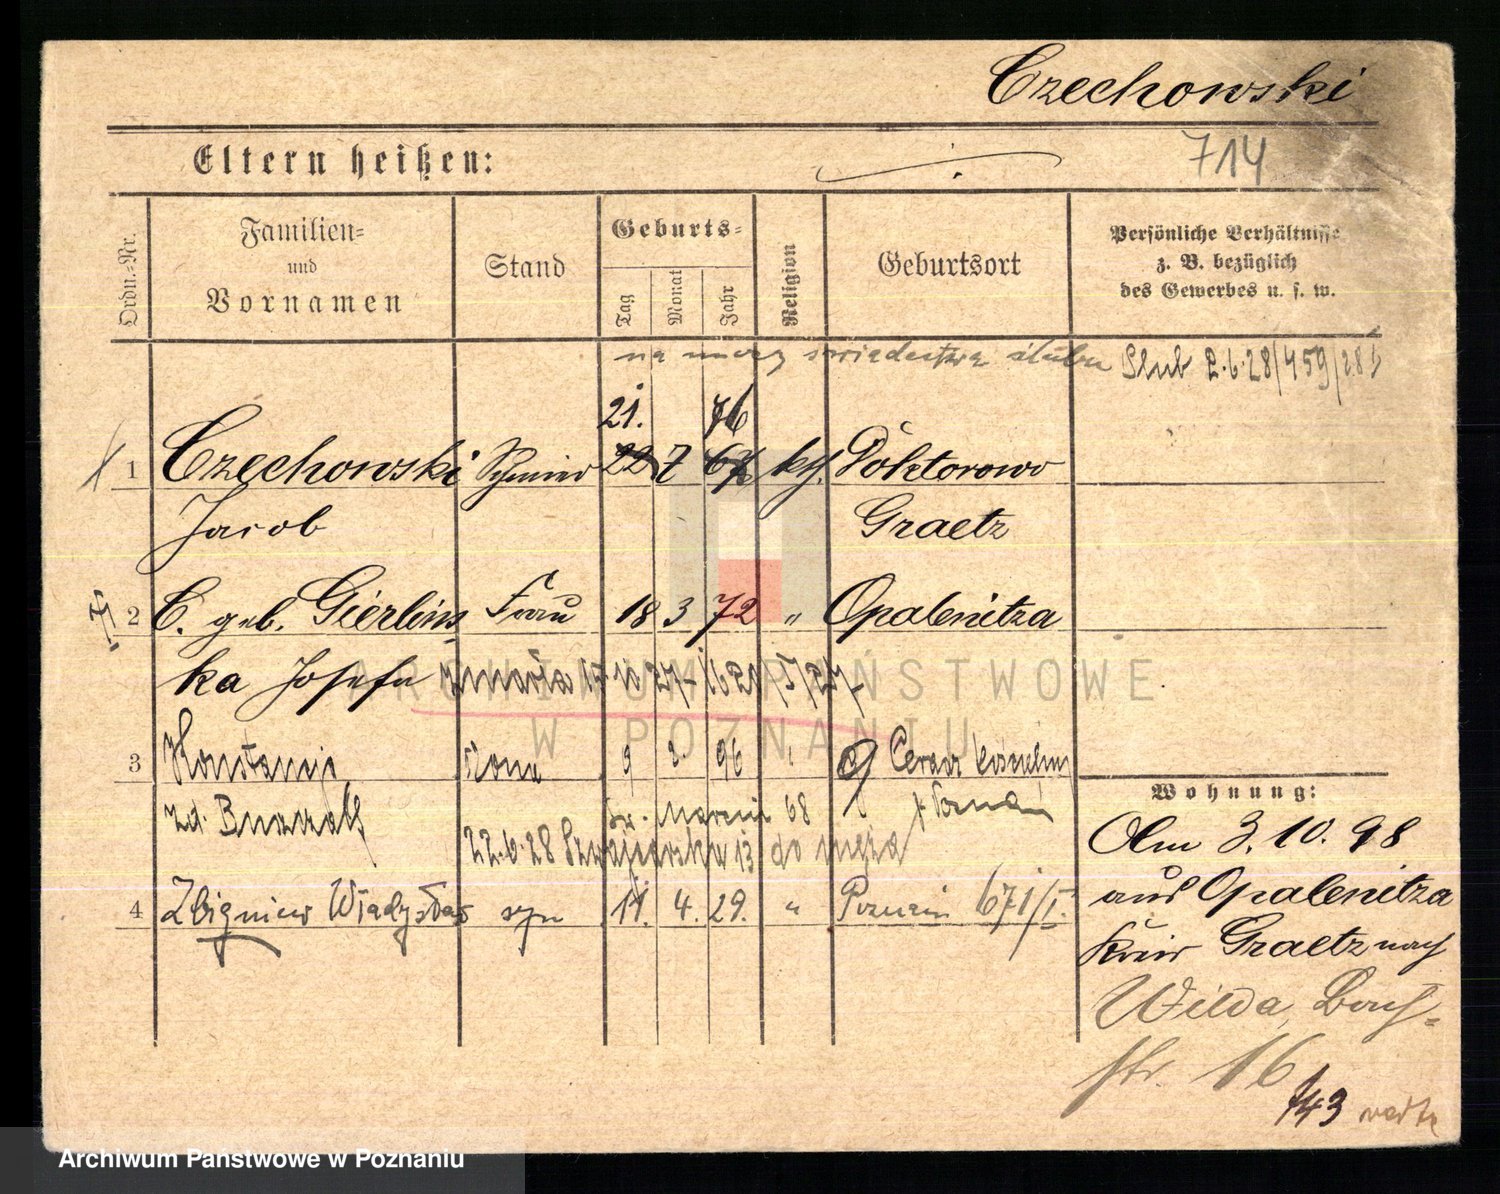 Czechowski
714
Eltern heißen:
Ordn.-Nr.
Familien- und Vornamen
Stand
Geburts-
Tag
Monat
Jahr
Religion
Geburtsort
Persönliche Verhältnisse z. B. bezüglich des Gewerbes u. s. w.
na mocy świadectwa ślubu Ślub 2.6.28/459/28
21. 76
1 Czechowski Schmied 22 7 67 kth. Doktorowo
Jacob Graetz
2 C. geb. Gierlins Frau 18 3 72 " Opalenitza
ka Josefa zmarła
3 Konstancja żona 9 2. 96 "
zd. Św. Marcin 68
22.6.28 Szwajcarska 13 do męża
4 Zbigniew Władysław syn 11. 4. 29. " Poznań 671/I.
Wohnung:
Olm 3.10.98
aus Opalenitza
Kreis Graetz nach
Wilda, Bach-
str. 16
743
ARCHIWUM PAŃSTWOWE
W POZNANIU
Archiwum Państwowe w Poznaniu